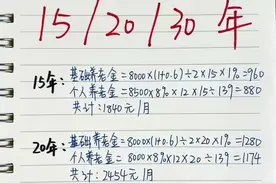 15/20/30 年
15年：基础养老金=8000×(1+0.6)÷2×15×1%=960
个人养老金=8500×8%×12×15÷139=880
共计：1840元/月
20年：基础养老金=8000×(1+0.6)÷2×20×1%=1280
个人养老金=8000×8%×12×20÷139=1174
共计：2454元/月